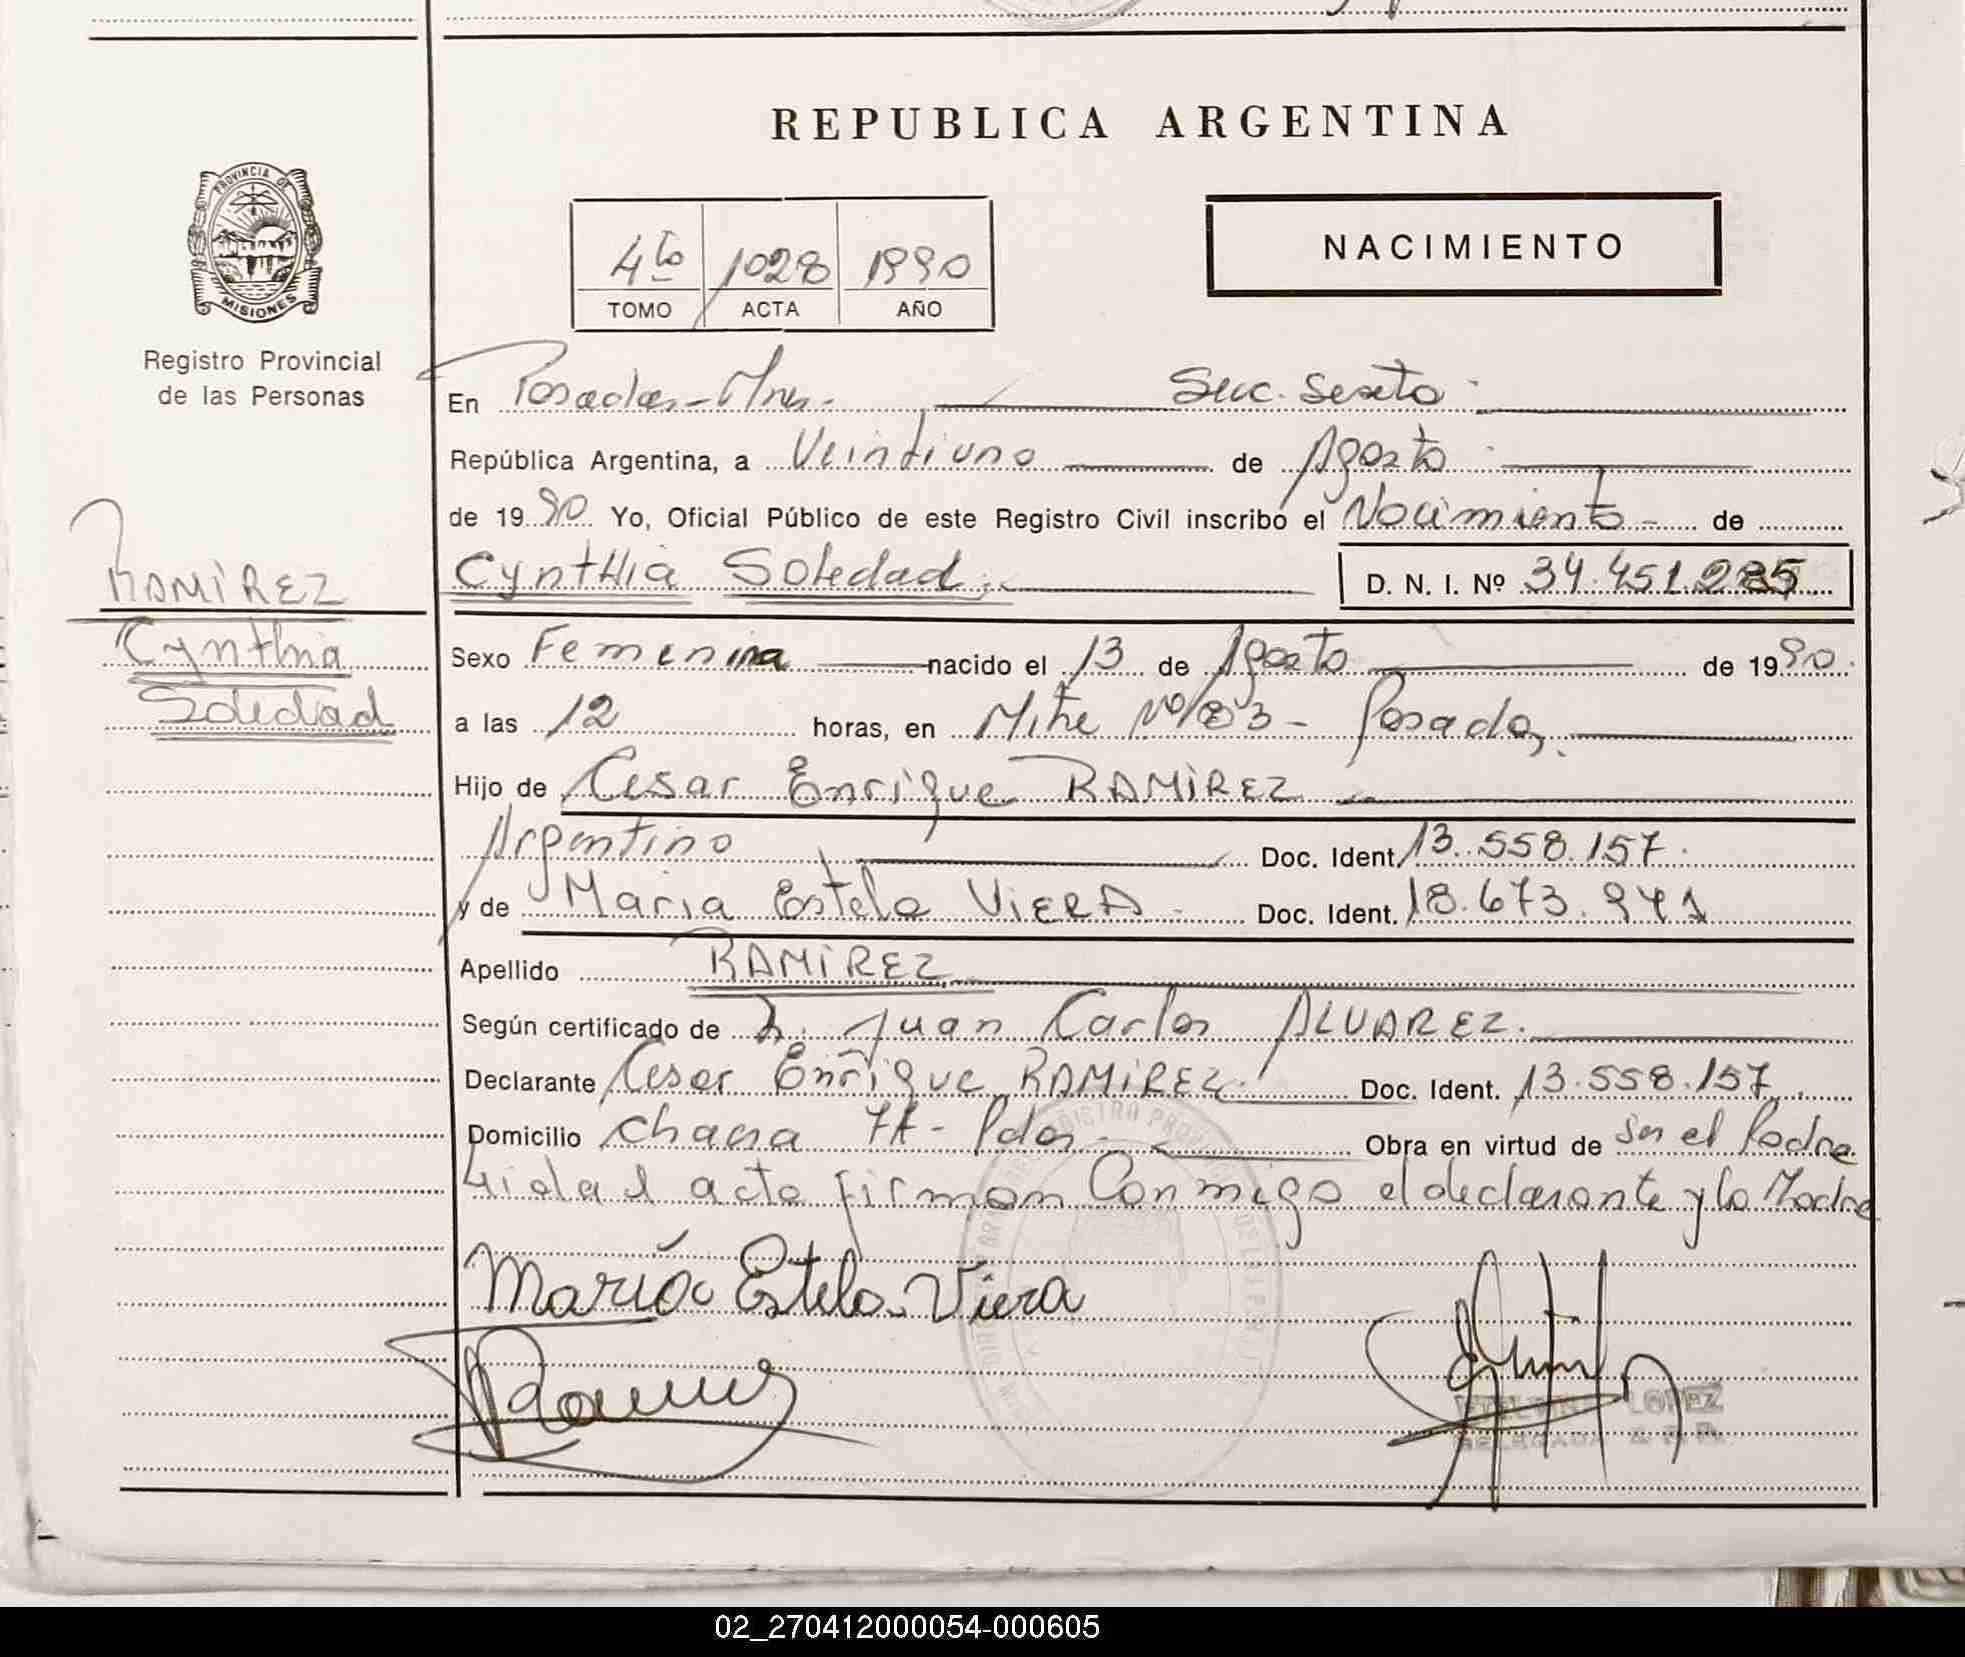 REPUBLICA ARGENTINA
PROVINCIA DE
MISIONES
Registro Provincial
de las Personas
4to 1028 1990
TOMO ACTA AÑO
NACIMIENTO
En Posadas - Mnes. Secc. Sexta
República Argentina, a Veintiuno de Agosto
de 1990 Yo, Oficial Público de este Registro Civil inscribo el Nacimiento de
RAMÍREZ
Cynthia
Soledad
Cynthia Soledad D. N. I. Nº 34.451.285
Sexo Femenina nacido el 13 de Agosto de 1990.
a las 12 horas, en Mitre Nº 83 - Posadas
Hijo de Cesar Enrique RAMÍREZ
Argentino Doc. Ident. 13.558.157.
y de Maria Estela VIERA Doc. Ident. 18.673.941
Apellido RAMÍREZ
Según certificado de Juan Carlos ALVAREZ.
Declarante Cesar Enrique RAMÍREZ Doc. Ident. 13.558.157
Domicilio Chacra - Pdas. Obra en virtud de Ser el Padre
Leida el acta firman Conmigo el declarante y la Madre
María Estela Viera
LOPEZ
DELEGADA
02_270412000054-000605